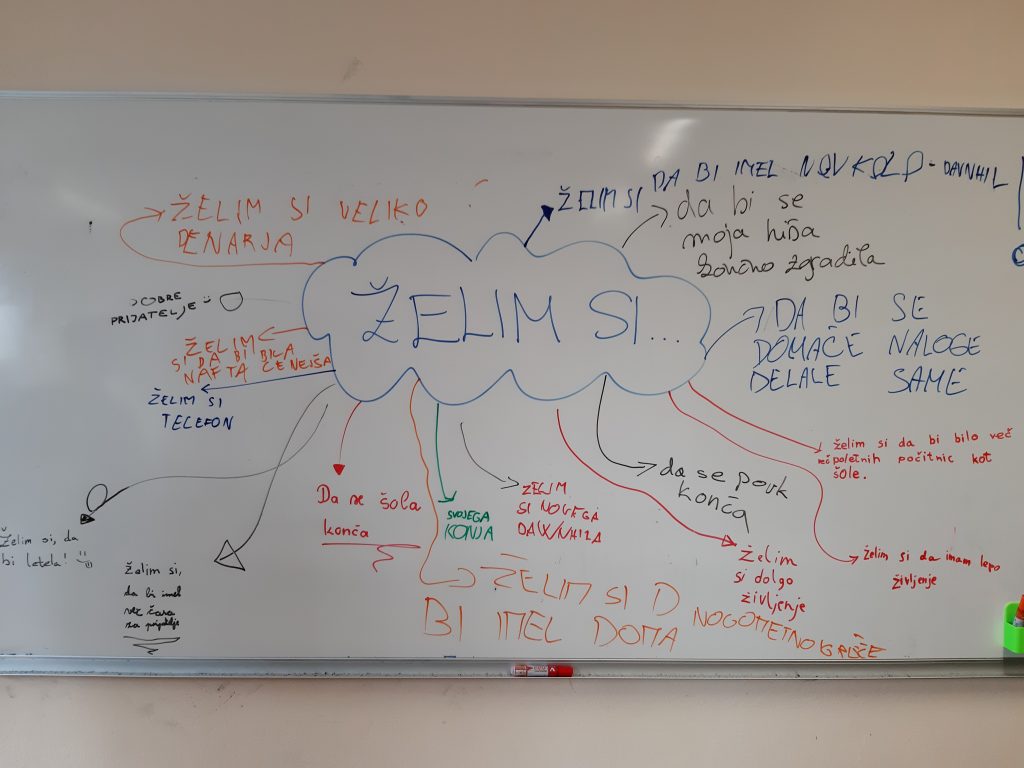 ŽELIM SI...
ŽELIM SI VELIKO
DENARJA
ŽELIM SI DA BI IMEL NOV KOLO - DAVNHIL
da bi se
moja hiša
končno zgradila
DOBRE
PRIJATELJE
ŽELIM
SI DA BI BILA
NAFTA CENEJŠA
ŽELIM SI
TELEFON
DA BI SE
DOMAČE NALOGE
DELALE SAME
želim si da bi bilo več
poletnih počitnic kot
šole.
Želim si, da
bi letela!
Želim si,
da bi imel
več časa
za prijatelje
Da se šola
konča
SVOJEGA
KONJA
ŽELIM
SI NOVEGA
DAWNHILA
da se pouk
konča
Želim
si dolgo
življenje
želim si da imam lepo
življenje
ŽELIM SI D
BI IMEL DOMA NOGOMETNO IGRIŠČE